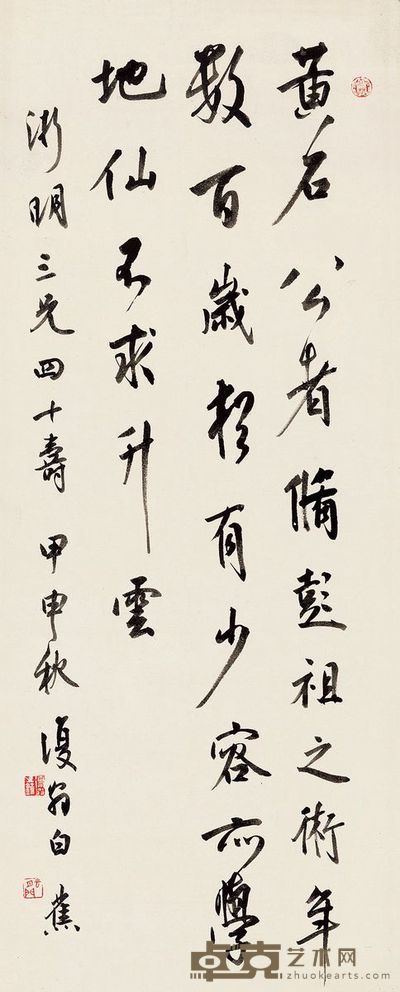 黃石公者脩彭祖之術年
數百歲猶有少容亦學
地仙不求升雲
漸明三兄四十壽 甲申秋 復翁白蕉
卓克艺术网
zhuokearts.com